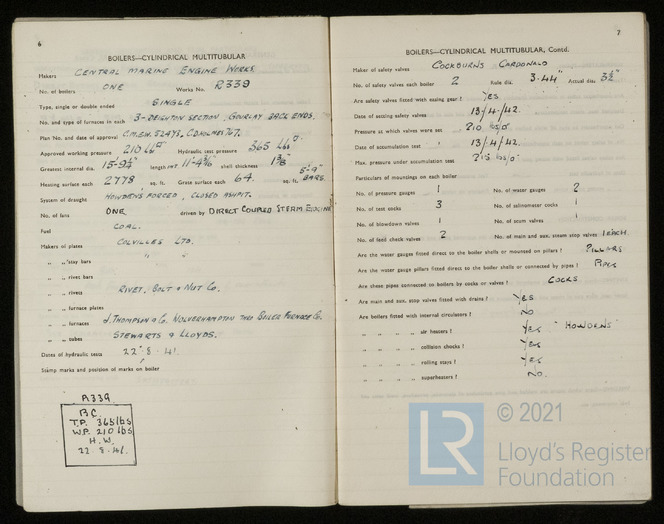 6
BOILERS—CYLINDRICAL MULTITUBULAR
Makers CENTRAL MARINE ENGINE WORKS.
No. of boilers ONE Works No. R339
Type, single or double ended SINGLE
No. and type of furnaces in each 3-DEIGHTON SECTION, GOURLAY BACK ENDS.
Plan No. and date of approval
Approved working pressure 210 lbs□" Hydraulic test pressure 365 lbs□".
Greatest internal dia. length INT. 11'-4 3/16" shell thickness 1 3/8"
Heating surface each 2778 sq. ft. Grate surface each 64. sq. ft. 5'-9" BARS
System of draught HOWDENS FORCED, CLOSED ASHPIT.
No. of fans ONE driven by DIRECT COUPLED STEAM ENGINE
Fuel COAL.
Makers of plates COLVILLES LTD.
" " stay bars " "
" " rivet bars
" " rivets RIVET, BOLT & NUT Co.
" " furnace plates
" " furnaces J. THOMPSON & Co. WOLVERHAMPTON THRO BOILER FURNACE Co.
" " tubes STEWARTS & LLOYDS.
Dates of hydraulic tests 22-8-41.
Stamp marks and position of marks on boiler
R339
B.C.
T.P. 365 lbs
W.P. 210 lbs
H.W.
22.8.41.
7
BOILERS—CYLINDRICAL MULTITUBULAR, Contd.
Maker of safety valves COCKBURNS CARDONALD
No. of safety valves each boiler 2 Rule dia. 3.44" Actual dia. 3½"
Are safety valves fitted with easing gear? YES
Date of setting safety valves 13/4/42.
Pressure at which valves were set 210 lbs□"
Date of accumulation test 13/4/42.
Max. pressure under accumulation test 215 lbs□"
Particulars of mountings on each boiler
No. of pressure gauges 1 No. of water gauges 2
No. of test cocks 3 No. of salinometer cocks 1
No. of blowdown valves 1 No. of scum valves 1
No. of feed check valves 2 No. of main and aux. steam stop valves 1 EACH
Are the water gauges fitted direct to the boiler shells or mounted on pillars? PILLARS
Are the water gauge pillars fitted direct to the boiler shells or connected by pipes? PIPES
Are these pipes connected to boilers by cocks or valves? COCKS
Are main and aux. stop valves fitted with drains? YES
Are boilers fitted with internal circulators? NO
" " " " air heaters? YES - HOWDENS
" " " " collision chocks? YES
" " " " rolling stays? YES
" " " " superheaters? NO.
LR © 2021
Lloyd's Register
Foundation